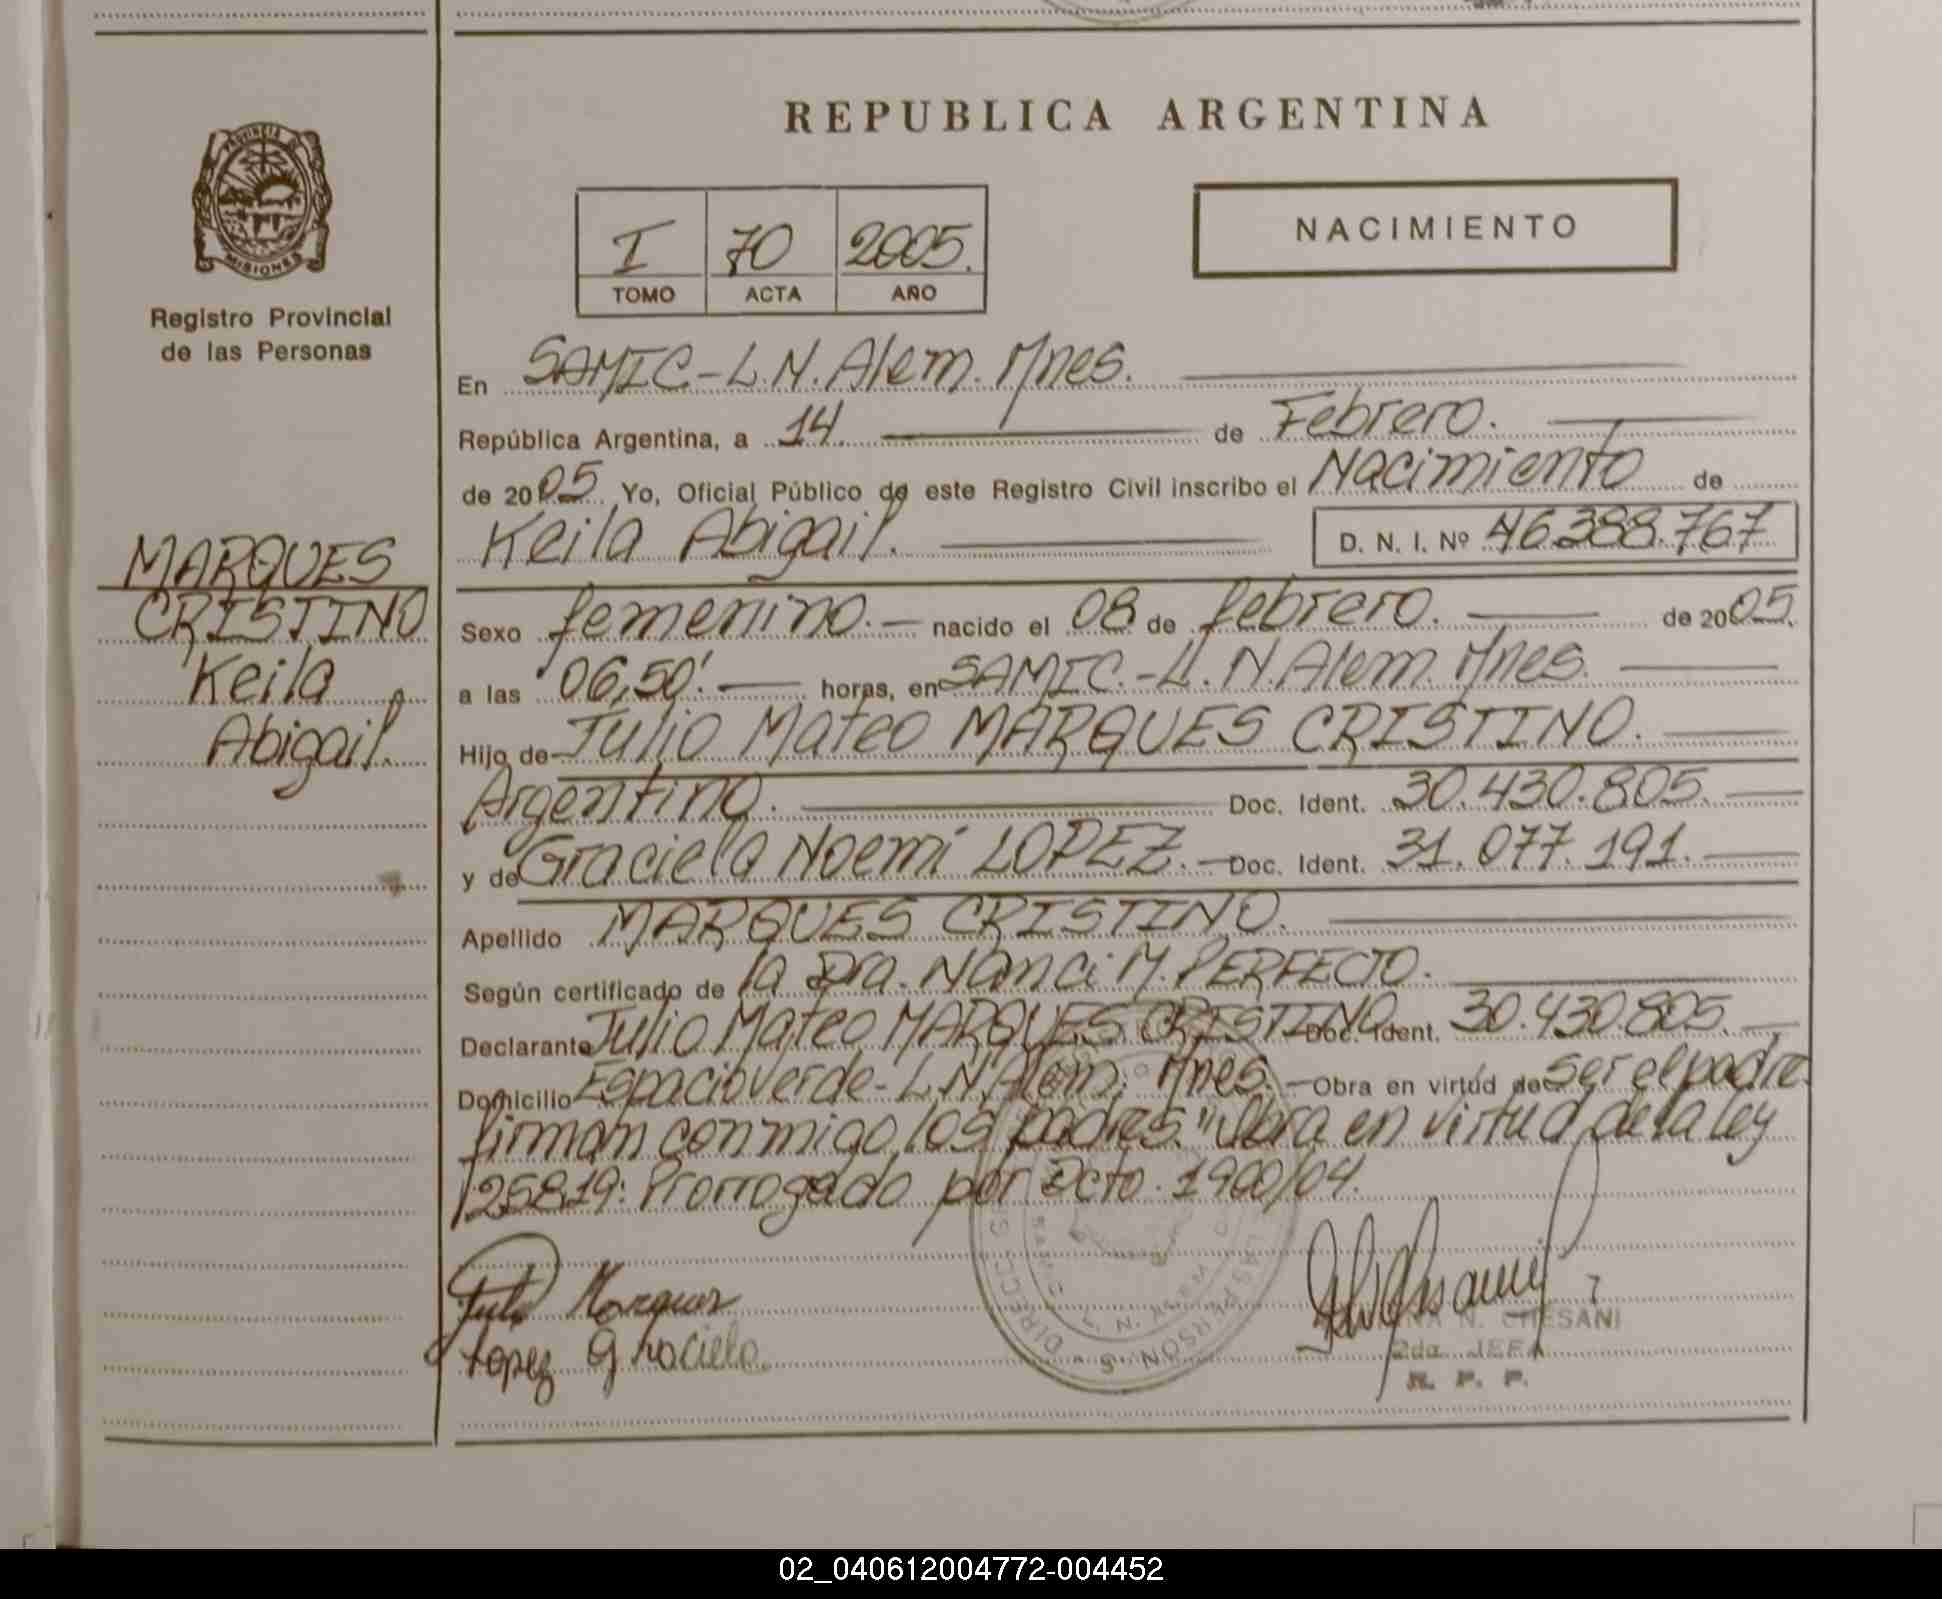 REPUBLICA ARGENTINA
PROVINCIA DE
MISIONES
Registro Provincial
de las Personas
I 70 2005.
TOMO ACTA AÑO
NACIMIENTO
En SAMIC.-L.N.Alem. Mnes.
República Argentina, a 14 de Febrero.
de 2005 Yo, Oficial Público de este Registro Civil inscribo el Nacimiento de
Keila Abigail. D. N. I. Nº 46.388.767
MARQUES
CRISTINO
Keila
Abigail.
Sexo femenino.- nacido el 08 de febrero. de 2005.
a las 06,50'. horas, en SAMIC.-L.N.Alem. Mnes.
Hijo de Julio Mateo MARQUES CRISTINO.
Argentino. Doc. Ident. 30.430.805.
y de Graciela Noemí LOPEZ.- Doc. Ident. 31.077.191.
Apellido MARQUES CRISTINO.
Según certificado de la Dra. Nanci M. PERFECTO.
Declarante Julio Mateo MARQUES CRISTINO Doc. Ident. 30.430.805.
Domicilio Espacio Verde-L.N.Alem. Mnes.- Obra en virtud de ser el padre
firman conmigo los padres. "Obra en virtud de la ley
25819: Prorrogado por Dcto. 1900/04.
Julio Marques
Lopez Graciela
N. CHESANI
2da. JEFA
R. P. P.
02_040612004772-004452